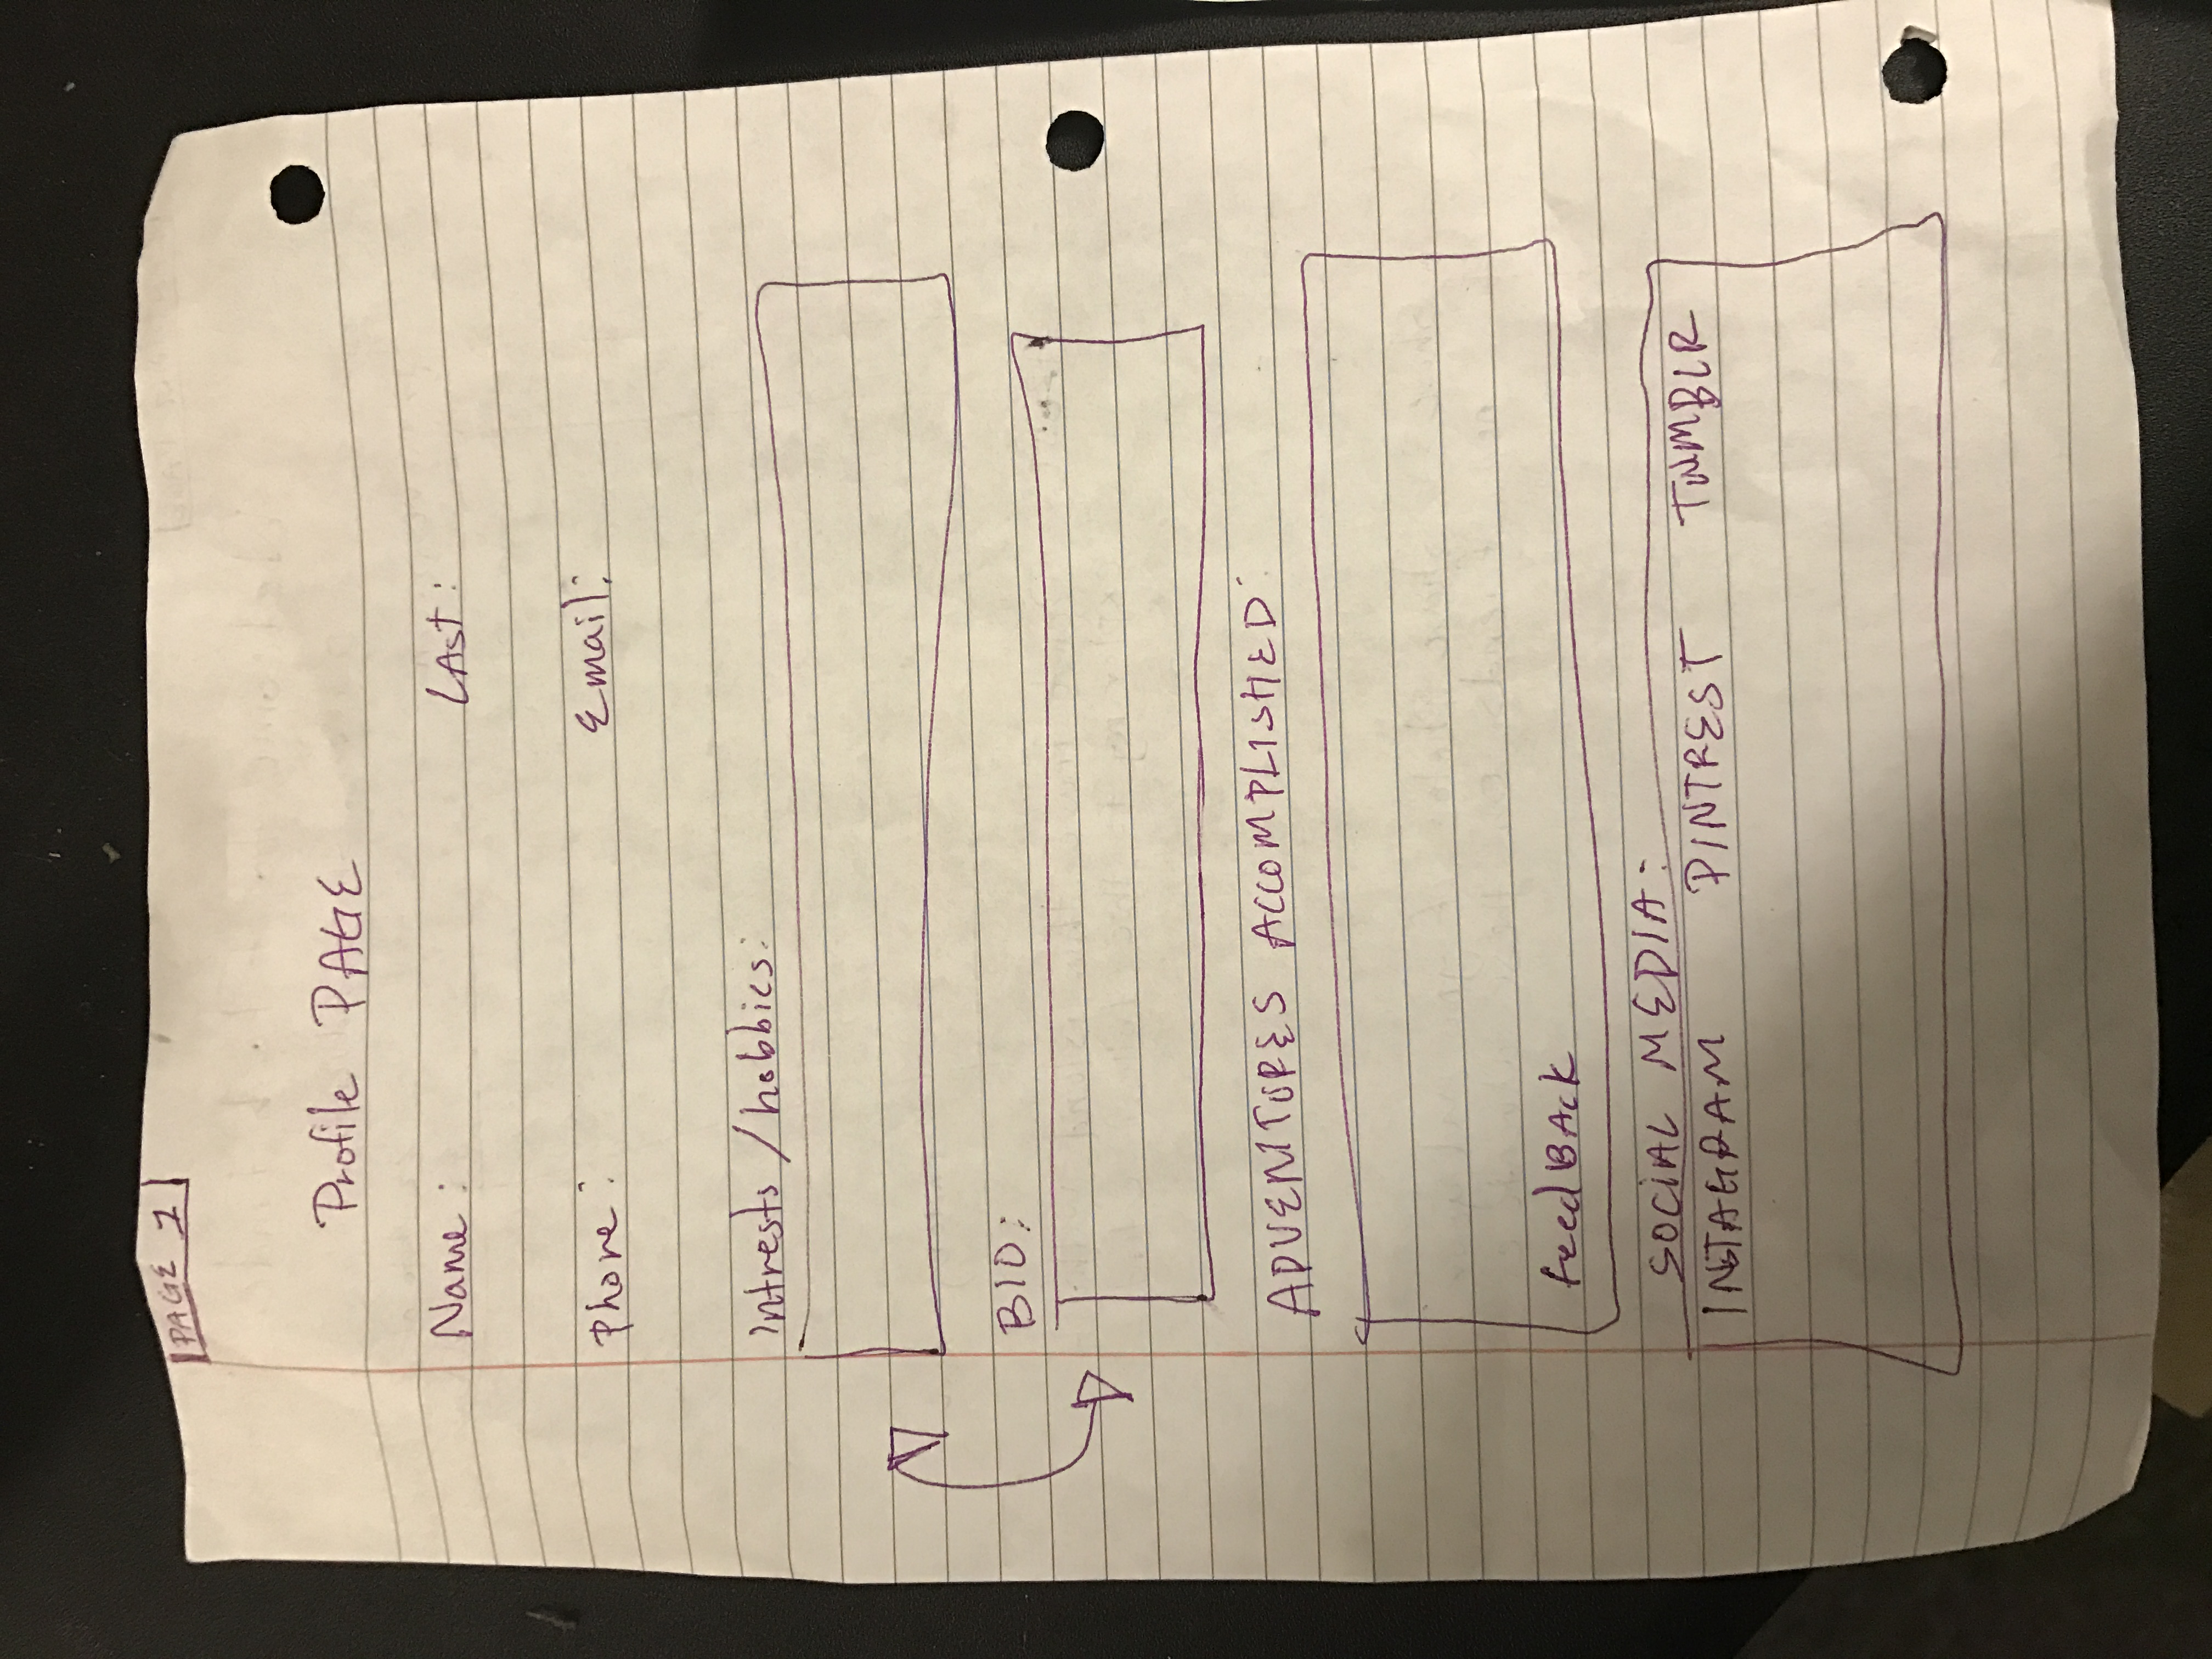 PAGE 1
Profile PAGE
Name: LAst:
Phone: Email:
Intrests/hobbies:
BIO:
ADVENTURES ACCOMPLISHED:
feedBAck
SOCIAL MEDIA:
INSTAGRAM PINTREST TUMBLR